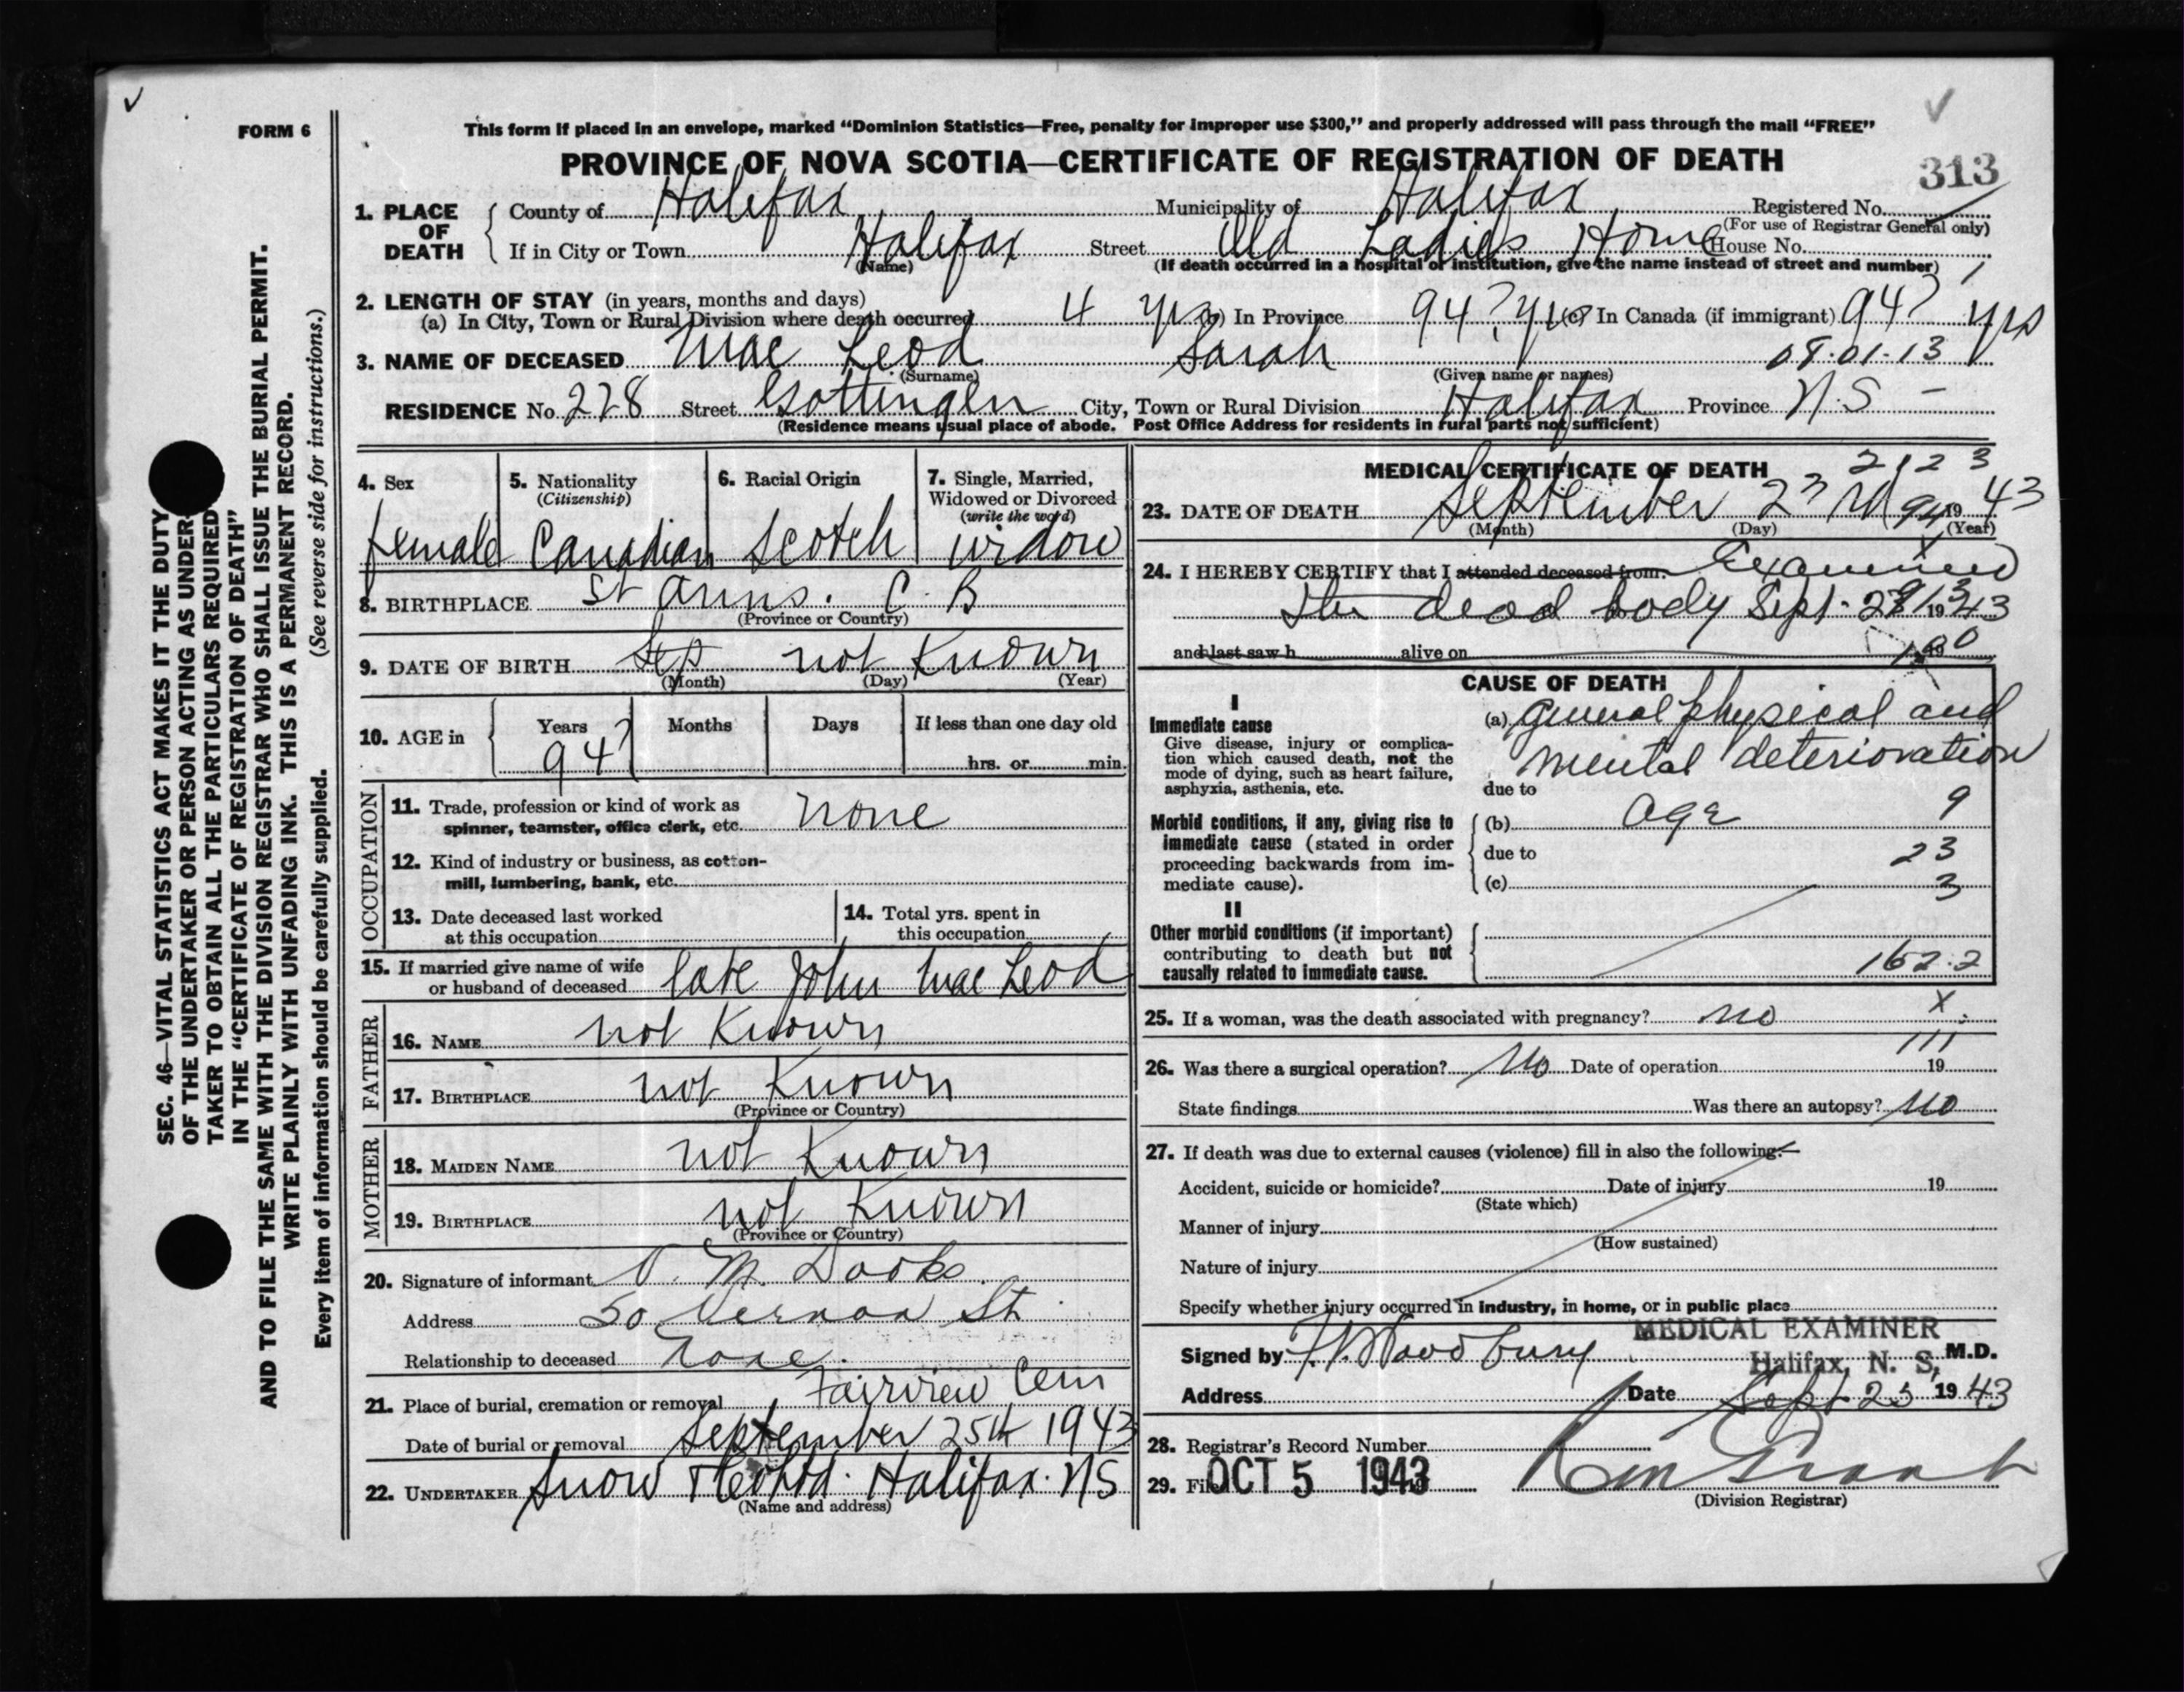 FORM 6
This form if placed in an envelope, marked “Dominion Statistics—Free, penalty for improper use $300,” and properly addressed will pass through the mail “FREE”
PROVINCE OF NOVA SCOTIA—CERTIFICATE OF REGISTRATION OF DEATH
313
1. PLACE OF DEATH
County of Halifax Municipality of Halifax Registered No.
(For use of Registrar General only)
If in City or Town Halifax Street Old Ladies Home House No.
(Name) (If death occurred in a hospital or institution, give the name instead of street and number)
2. LENGTH OF STAY (in years, months and days)
(a) In City, Town or Rural Division where death occurred 4 yrs (b) In Province 94? yrs (c) In Canada (if immigrant) 94? yrs
3. NAME OF DECEASED Mac Leod Sarah 08.01.13
(Surname) (Given name or names)
RESIDENCE No. 228 Street Gottingen City, Town or Rural Division Halifax Province N.S –
(Residence means usual place of abode. Post Office Address for residents in rural parts not sufficient)
4. Sex
female
5. Nationality
(Citizenship)
Canadian
6. Racial Origin
Scotch
7. Single, Married, Widowed or Divorced
(write the word)
widow
8. BIRTHPLACE St Anns. C.B
(Province or Country)
9. DATE OF BIRTH Sep not Known
(Month) (Day) (Year)
10. AGE in Years Months Days If less than one day old
94? hrs. or min.
OCCUPATION
11. Trade, profession or kind of work as
spinner, teamster, office clerk, etc. none
12. Kind of industry or business, as cotton-
mill, lumbering, bank, etc.
13. Date deceased last worked
at this occupation
14. Total yrs. spent in
this occupation
15. If married give name of wife
or husband of deceased late John Mac Leod
FATHER
16. NAME not Known
17. BIRTHPLACE not Known
(Province or Country)
MOTHER
18. MAIDEN NAME not Known
19. BIRTHPLACE not Known
(Province or Country)
20. Signature of informant O. M. Dooks
Address 50 Vernon St
Relationship to deceased None.
21. Place of burial, cremation or removal Fairview Cem
Date of burial or removal September 25th 1943
22. UNDERTAKER Snow & Co Ltd. Halifax. NS
(Name and address)
MEDICAL CERTIFICATE OF DEATH 2123
23. DATE OF DEATH September 23 1943
(Month) (Day) (Year)
24. I HEREBY CERTIFY that I attended deceased from: Examined
the dead body Sept. 1943
and last saw h alive on 19
CAUSE OF DEATH
I
Immediate cause
Give disease, injury or complica-
tion which caused death, not the
mode of dying, such as heart failure,
asphyxia, asthenia, etc.
(a) General physical and
mental deterioration
due to
Morbid conditions, if any, giving rise to
immediate cause (stated in order
proceeding backwards from im-
mediate cause).
(b) Age 9
due to 23
(c) 3
II
Other morbid conditions (if important)
contributing to death but not
causally related to immediate cause.
162.2
25. If a woman, was the death associated with pregnancy? no X
111
26. Was there a surgical operation? No Date of operation 19
State findings Was there an autopsy? No
27. If death was due to external causes (violence) fill in also the following:—
Accident, suicide or homicide? Date of injury 19
(State which)
Manner of injury
(How sustained)
Nature of injury
Specify whether injury occurred in industry, in home, or in public place
MEDICAL EXAMINER
Signed by Woodbury Halifax, N. S. M.D.
Address Date Sept 25 1943
28. Registrar's Record Number
29. Filed OCT 5 1943
(Division Registrar)
SEC. 46—VITAL STATISTICS ACT MAKES IT THE DUTY
OF THE UNDERTAKER OR PERSON ACTING AS UNDER-
TAKER TO OBTAIN ALL THE PARTICULARS REQUIRED
IN THE “CERTIFICATE OF REGISTRATION OF DEATH”
AND TO FILE THE SAME WITH THE DIVISION REGISTRAR WHO SHALL ISSUE THE BURIAL PERMIT.
WRITE PLAINLY WITH UNFADING INK. THIS IS A PERMANENT RECORD.
Every item of information should be carefully supplied. (See reverse side for instructions.)